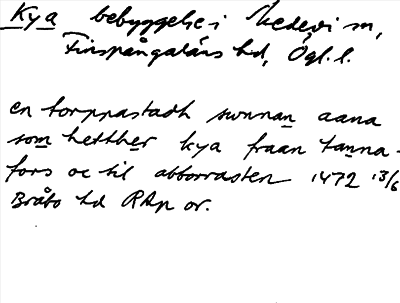 Kya bebyggelse i Skedevi sn,
Finspångaläns hd, Ögl. l.
en torppastadh sunnan aana
som hetther kya fraan tanna-
fors oc til abborrasten 1472 13/6
Bråbo hd RAp or.